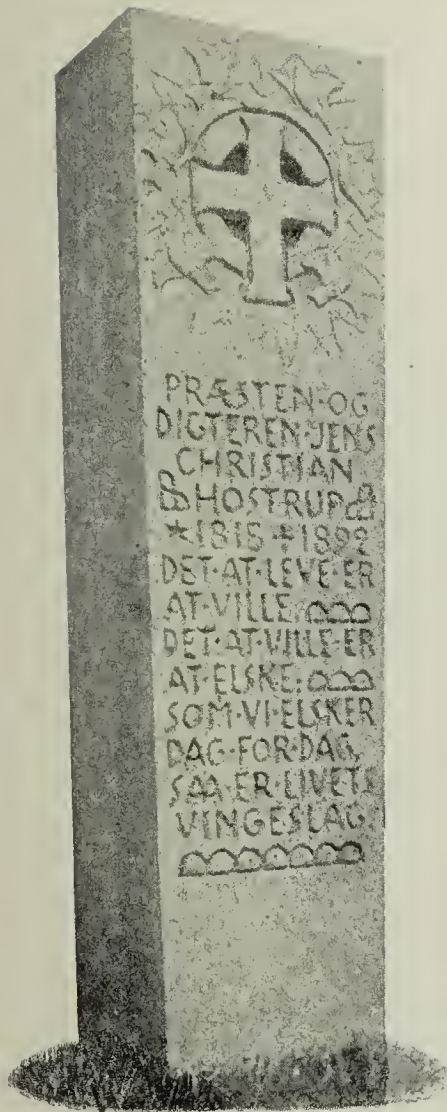 PRÆSTEN·OG
DIGTEREN·JENS
CHRISTIAN
HOSTRUP
*1815 †1892
DET·AT·LEVE·ER
AT·VILLE·
DET·AT·VILLE·ER
AT·ELSKE·
SOM·VI·ELSKER
DAG·FOR·DAG,
SAA·ER·LIVETS
VINGESLAG·